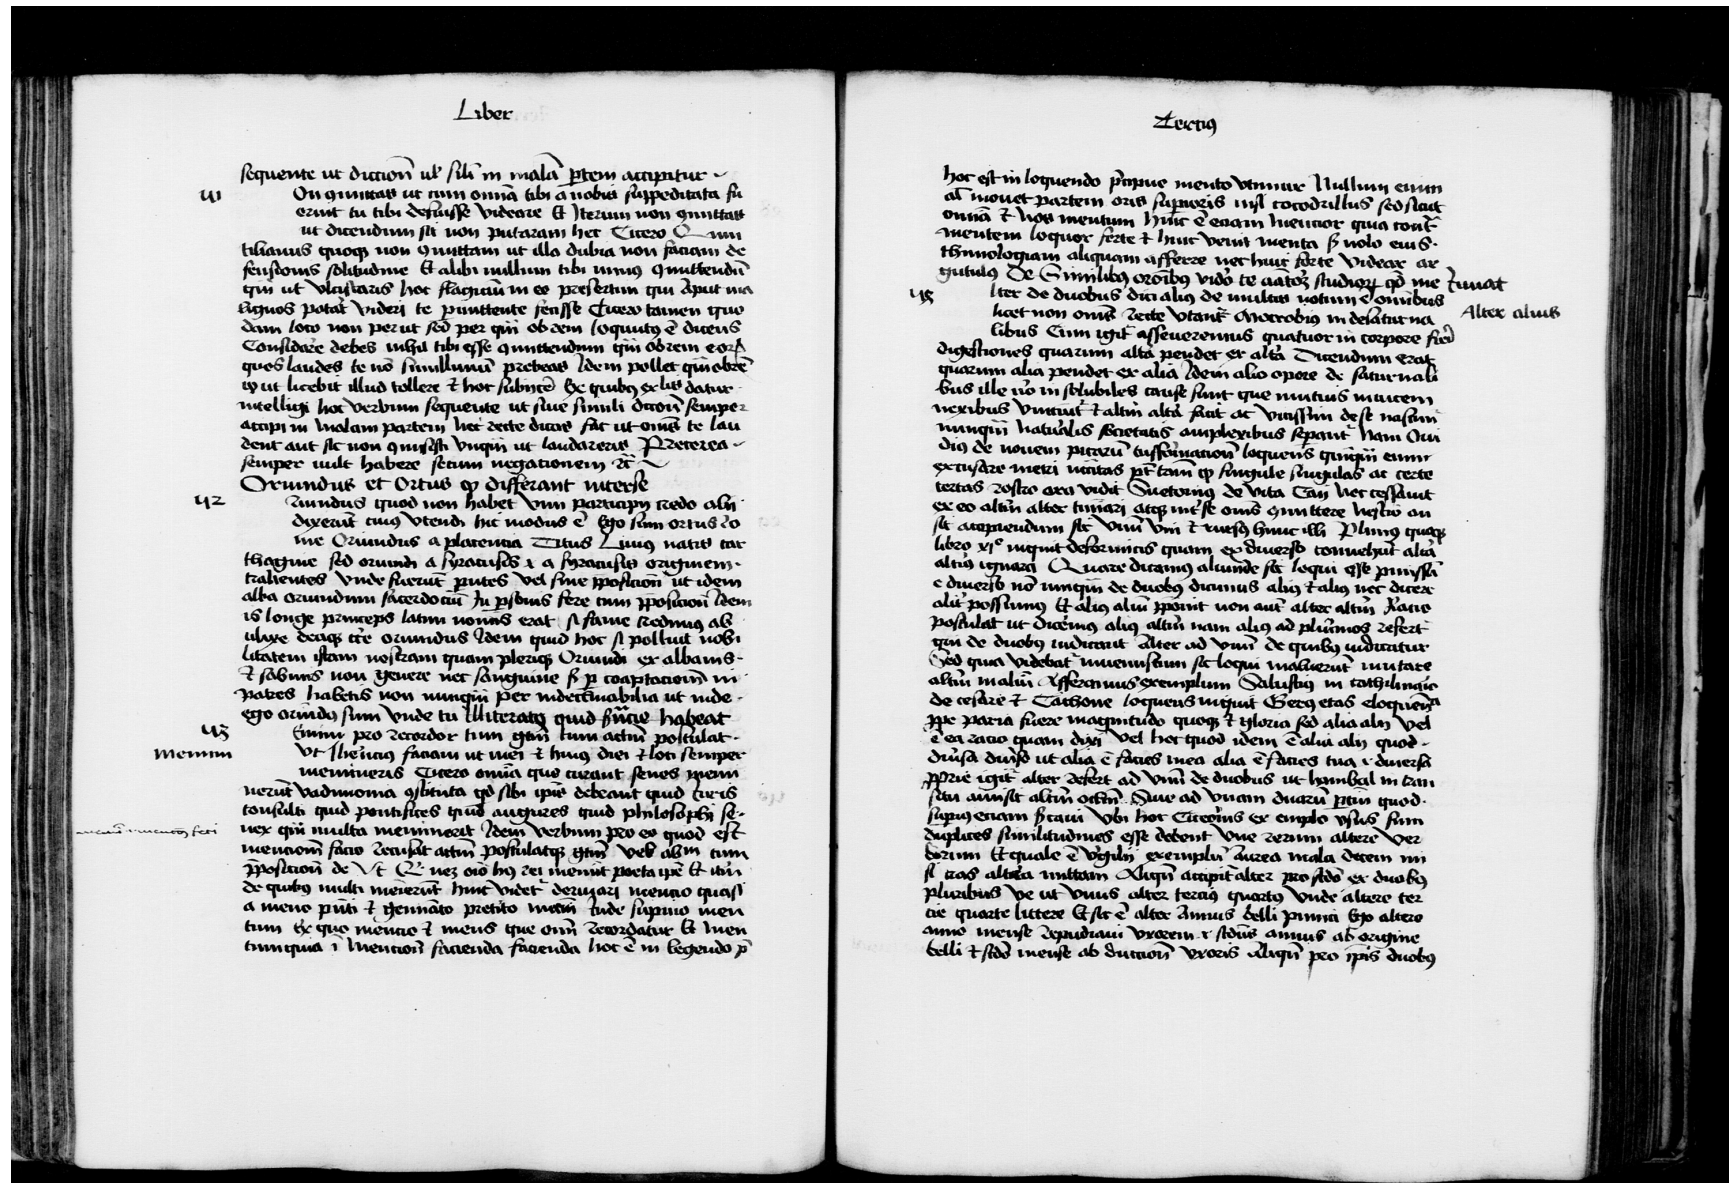 Liber
sequente ut diccioñ ul' sili in malā ꝑtem accipitur
On ꝯmittas ut cum omnia tibi a nobis suppeditata fu
erint tu tibi defuisse videare Et Iterum non ꝯmittas
ut dicendum sit non putaram hec Cicero Quin
tilianus quoqꝫ non ꝯmittam ut illa dubia non faciam de
fensionis solitudine Et alibi nullum tibi unius ꝯmittendū
qin ut ulciscaris hoc flagicium in eo presertim qui Aput ma
lignos potat' videri te permittente fecisse Cicero tamen quo
dam loco non per ut sed per qin ob rem loquutꝰ ē dicens
Considare debes nihil tibi esse ꝯmittendum qin ob rem eorꝫ
quos laudes te nō simillimum prebeas Idem pollet qin obrē
qꝫ ut licebit illud tollere & hoc subicē Ex quibꝰ ex lis datur
intelligi hoc verbum sequente ut siue simili diccōn semper
accipi in malam partem nec recte dicas fac ut omīs te lau
dent aut sic non ꝯmisisti unqin ut laudareris Preterea
semper uult habere secum negationem &c
Oriundus et Ortus qꝫ differant interse
42
Riundus quod non habet vim participij credo alij
dixerūt cuius vtendi hic modus ē Ego sum ortus Ro
me Oriundus a placentia Titus Liuiꝰ natis car
thagine sed oriundi a syracusis & a syracusis originem
trahentes Vnde fuerūt ꝑntes Vel sine ꝓposicioñ ut idem
alba oriundum sacerdociū In ꝑsonis fere cum ꝓposicioñ Idem
is longe princeps latini nomīs erat si fame credimus ab
ulixe deaqꝫ circe oriundus Idem quid hoc si polluit nobi
litatem istam nostram quam pleriqꝫ Oriundi ex albanis
& sabinis non genere nec sanguine sꝫ ꝑ coaptacionē in
patres habetis non nunqin per indeclinabilia ut inde
ego oriūdꝰ sum Vnde tu Illiteratꝰ quid sn̄cie habeat
43
Memini
Emini pro recordor tum gtm̄ tum actm̄ postulat
Vt Therēcius faciam ut mei & huius diei & loci semper
memineris Cicero omīa que curant senes memi
nerūt Vadimonia ꝯstituta qd sibi ipis debeant quid iuris
consulti quid pontifices quid augures quid philosophi se
nex qin multa meminerit Idem verbum pro eo quod est
mencioñm facio recusat actm̄ postulatqꝫ gtm̄ vel' abm̄ cum
ꝓposicioñ de
de quibꝰ multi meierūt hinc videt' deriuari mencio quasi
a meno
tum Ex quo mencio & mens que oīm recordatur Et men
tumquia ī mencioñ facienda facienda hoc ē in legendo ꝑ
Tercius
hoc est in loquendo ꝑcipue mento vtimur Nullum enim
al' mouet partem oris suꝑioris nisi cocodrillus sed sicut
omīa & nos mentum hinc ē eciam mencior quia cont'
mentem loquor forte & hinc venit menta sꝫ nolo eius
thimologiam aliquam afferre nec huic forte videar ar
gutulus De Similibꝰ
45
lter de duobus dici alius de multis notum ē omībus
Alter alius
licet non omīs recte vtant' Macrobiꝰ in desaturna
libus Cum igit' asseueremus quatuor in corpore fieri
digestiones quarum alt'a pendet ex alt'a Dicendum erat
quarum alia pendet ex alia Idem alio opere de saturnali
bus ille u'o insolubiles cause sunt que mutuis inuicem
nexibus vinciunt' & alt'm alt'a facit ac vicissim de se nascun
nunqin naturalis societatis amplexibus separant' Nam Oui
dius de nouem picarū trāsformacioñ loquens quinqin enim
excusare metri ncc̄itas pt̄ tamē qꝫ singule singulas ac certe
certas rostro ora vidit Suetonius de vita Caij Nec cessauit
ex eo alt'm alter timari atqꝫ int'se omīs ꝯmittere nescio an
sit accipiendum sic vnū vni & rursꝰ hunc illi Plinius quoqꝫ
libro xiº inquit deformitas quam ex diuerso conuehūt alt'a
alt'iꝰ ignara Quare dicamus aliunde sic loqui esse ꝑmissū
e diuerso nō nunqin de duobꝰ dicimus alius & alius nec dicere
alit' possumus Et aliꝰ aliū ꝓponit non aut' alter alt'm Racio
postulat ut dicemus aliꝰ alt'm nam aliꝰ ad plurimos refert
qui de duobꝰ indicant Alter ad vnū de quibꝰ iudicatur
Sed quia videbat' inuenustum sic loqui maluerūt mutare
alt'm in aliū Afferamus exemplum Salustiꝰ in cathilinario
de cesare & Cathone loquens inquit Genꝰ etas eloquen'a
ꝓpe paria fuere magnitudo quoqꝫ & gloria sed alia alij Vel
ē ea racio quam dixi vel hoc quod idem ē alia alij quod
diuisa diuiso ut alia ē facies mea alia ē facies tua .i. diuersa
ꝓprie igit' alter refert ad vnū de duobus ut hanibal in tran
situ amisit alt'm oclm̄ Siue ad vnam duarū ptiū quod
supꝰ eciam scripsi ubi hoc Ciceronis exemplo vsus sum
duplices similitudines esse debent vne rerum altere ver
borum Et quale ē virgilij exemplū Aurea mala decem mi
si cras alt'a mittam Aliqn̄ accipit' alter pro scdo ex duobꝰ
pluribus ve ut vnus alter tercius quartus Vnde altere ter
cie quarte littere Et sic ē alter annus belli punici Ego altero
anno mense repudiaui vxorem .i. scdūs annus ab origine
belli & scdo mense ab ductioñ vxoris Aliqn̄ pro ipis duobꝰ